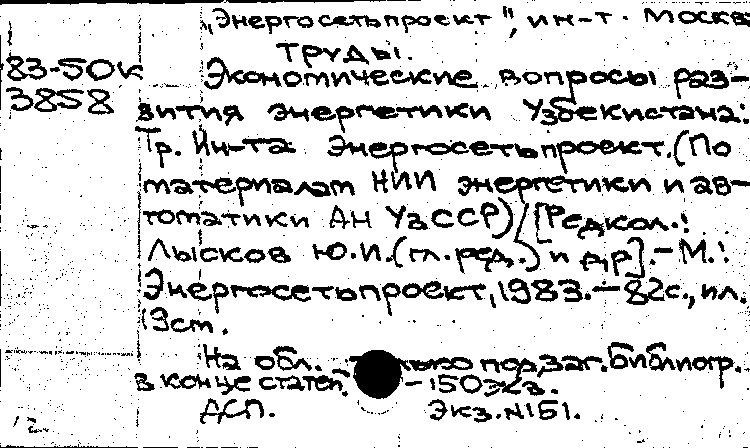 "Энергосетьпроект", ин-т. Москва
Труды.
83-50к Экономические вопросы раз-
3858 вития энергетики Узбекистана:
Тр. Ин-та Энергосетьпроект. (По
материалам НИИ энергетики и ав-
томатики АН УзССР) / [Редкол.:
Лысков Ю.И. (гл. ред.) и др]. - М.:
Энергосетьпроект, 1983. - 82с., ил.
19см.
На обл. только подзаг. Библиогр.
в конце статей. - 150экз.
ДСП. Экз. №151.
12